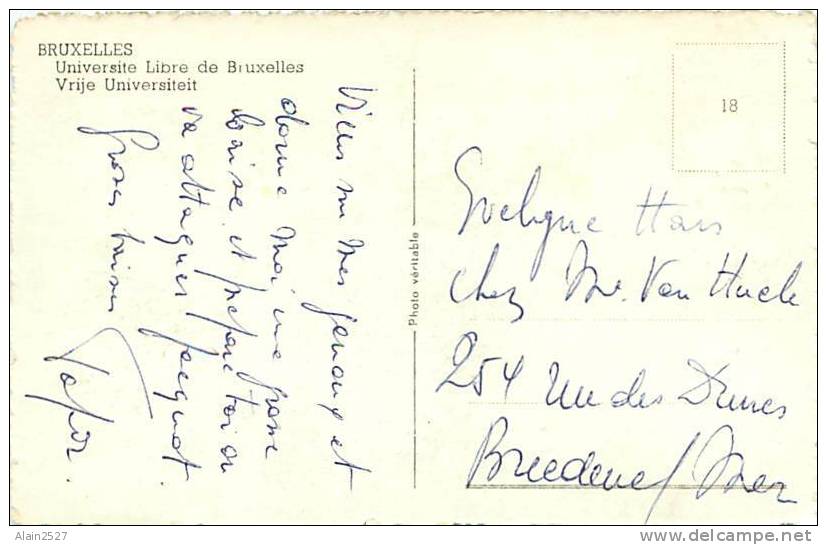 BRUXELLES
Universite Libre de Bruxelles
Vrije Universiteit
Viens sur mes genoux et
donne moi une grosse
baise et prépare toi on
va attaquer Jacquot
Grosses baises
Papa
Photo véritable
18
Evelyne Hans
chez Mr. Van Hucle
254 Rue des Dunes
Breedene/Mer
Alain2527
delcampe.net